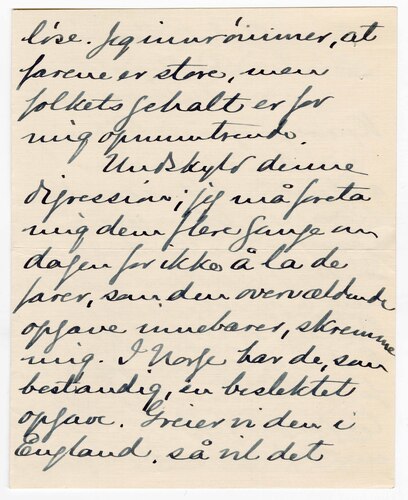 løse. Jeg innrømmer, at
farene er store, men
folkets gehalt er for
mig opmuntrende.
Undskyld denne
digression; jeg må foreta
mig dem flere gange om
dagen for ikke å la de
farer, som den overvældende
opgave innebærer, skremme
mig. I Norge har de, som
bestandig, en beslektet
opgave. Greier vi den i
England, så vil det